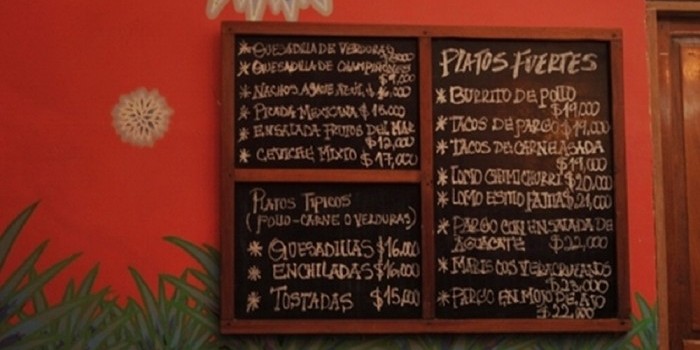 * QUESADILLA DE VERDURAS
* QUESADILLA DE CHAMPIÑONES
$9,000
* NACHOS AGAVE AZUL
* PICADA MEXICANA $15.000
* ENSALADA FRUTOS DEL MAR
$12,000
* CEVICHE MIXTO $17,000
PLATOS TIPICOS
(POLLO-CARNE O VERDURAS)
* QUESADILLAS $16.000
* ENCHILADAS $16,000
* TOSTADAS $15,000
PLATOS FUERTES
* BURRITO DE POLLO
$19,000
* TACOS DE PARGO $19,000
* TACOS DE CARNE ASADA
$19,000
* LOMO CHIMICHURRI $20,000
* LOMO ESTILO FAJITAS $21,000
* PARGO CON ENSALADA DE
AGUACATE $22,000
* MARISCOS VERACRUZANOS
$23,000
* PARGO EN MOJO DE AJO
$22.000